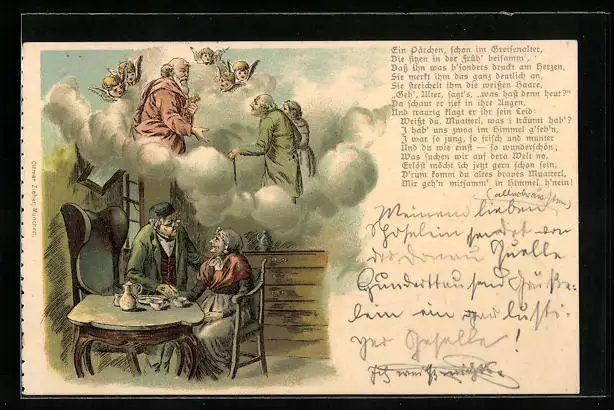 Ein Pärchen, schon im Greisenalter,
Die sitzen in der Früh' beisamm',
Daß ihn was b'sonders druckt am Herzen,
Sie merkt ihm das ganz deutlich an,
Sie streichelt ihm die weißen Haare,
„Geh', Alter, sagt's, „was hast denn heut?"
Da schaut er tief in ihre Augen,
Und traurig klagt er ihr sein Leid:
Weißt du, Muatterl, was i träumt hab'?
I hab' uns zwoa im Himmel g'seh'n,
I war so jung, so frisch und munter
Und du wie einst — so wunderschön;
Was suchen wir auf dera Welt no,
Erlöst möcht i jetzt gern schon sein,
D'rum komm du altes braves Muatterl,
Mir geh'n mitsamm' in Himmel h'nein!
Meinem lieben
sendet von
der Donau Quelle
Hunderttausend
lein ein gar lusti-
ger Geselle!
Ottmar Zieher, München.